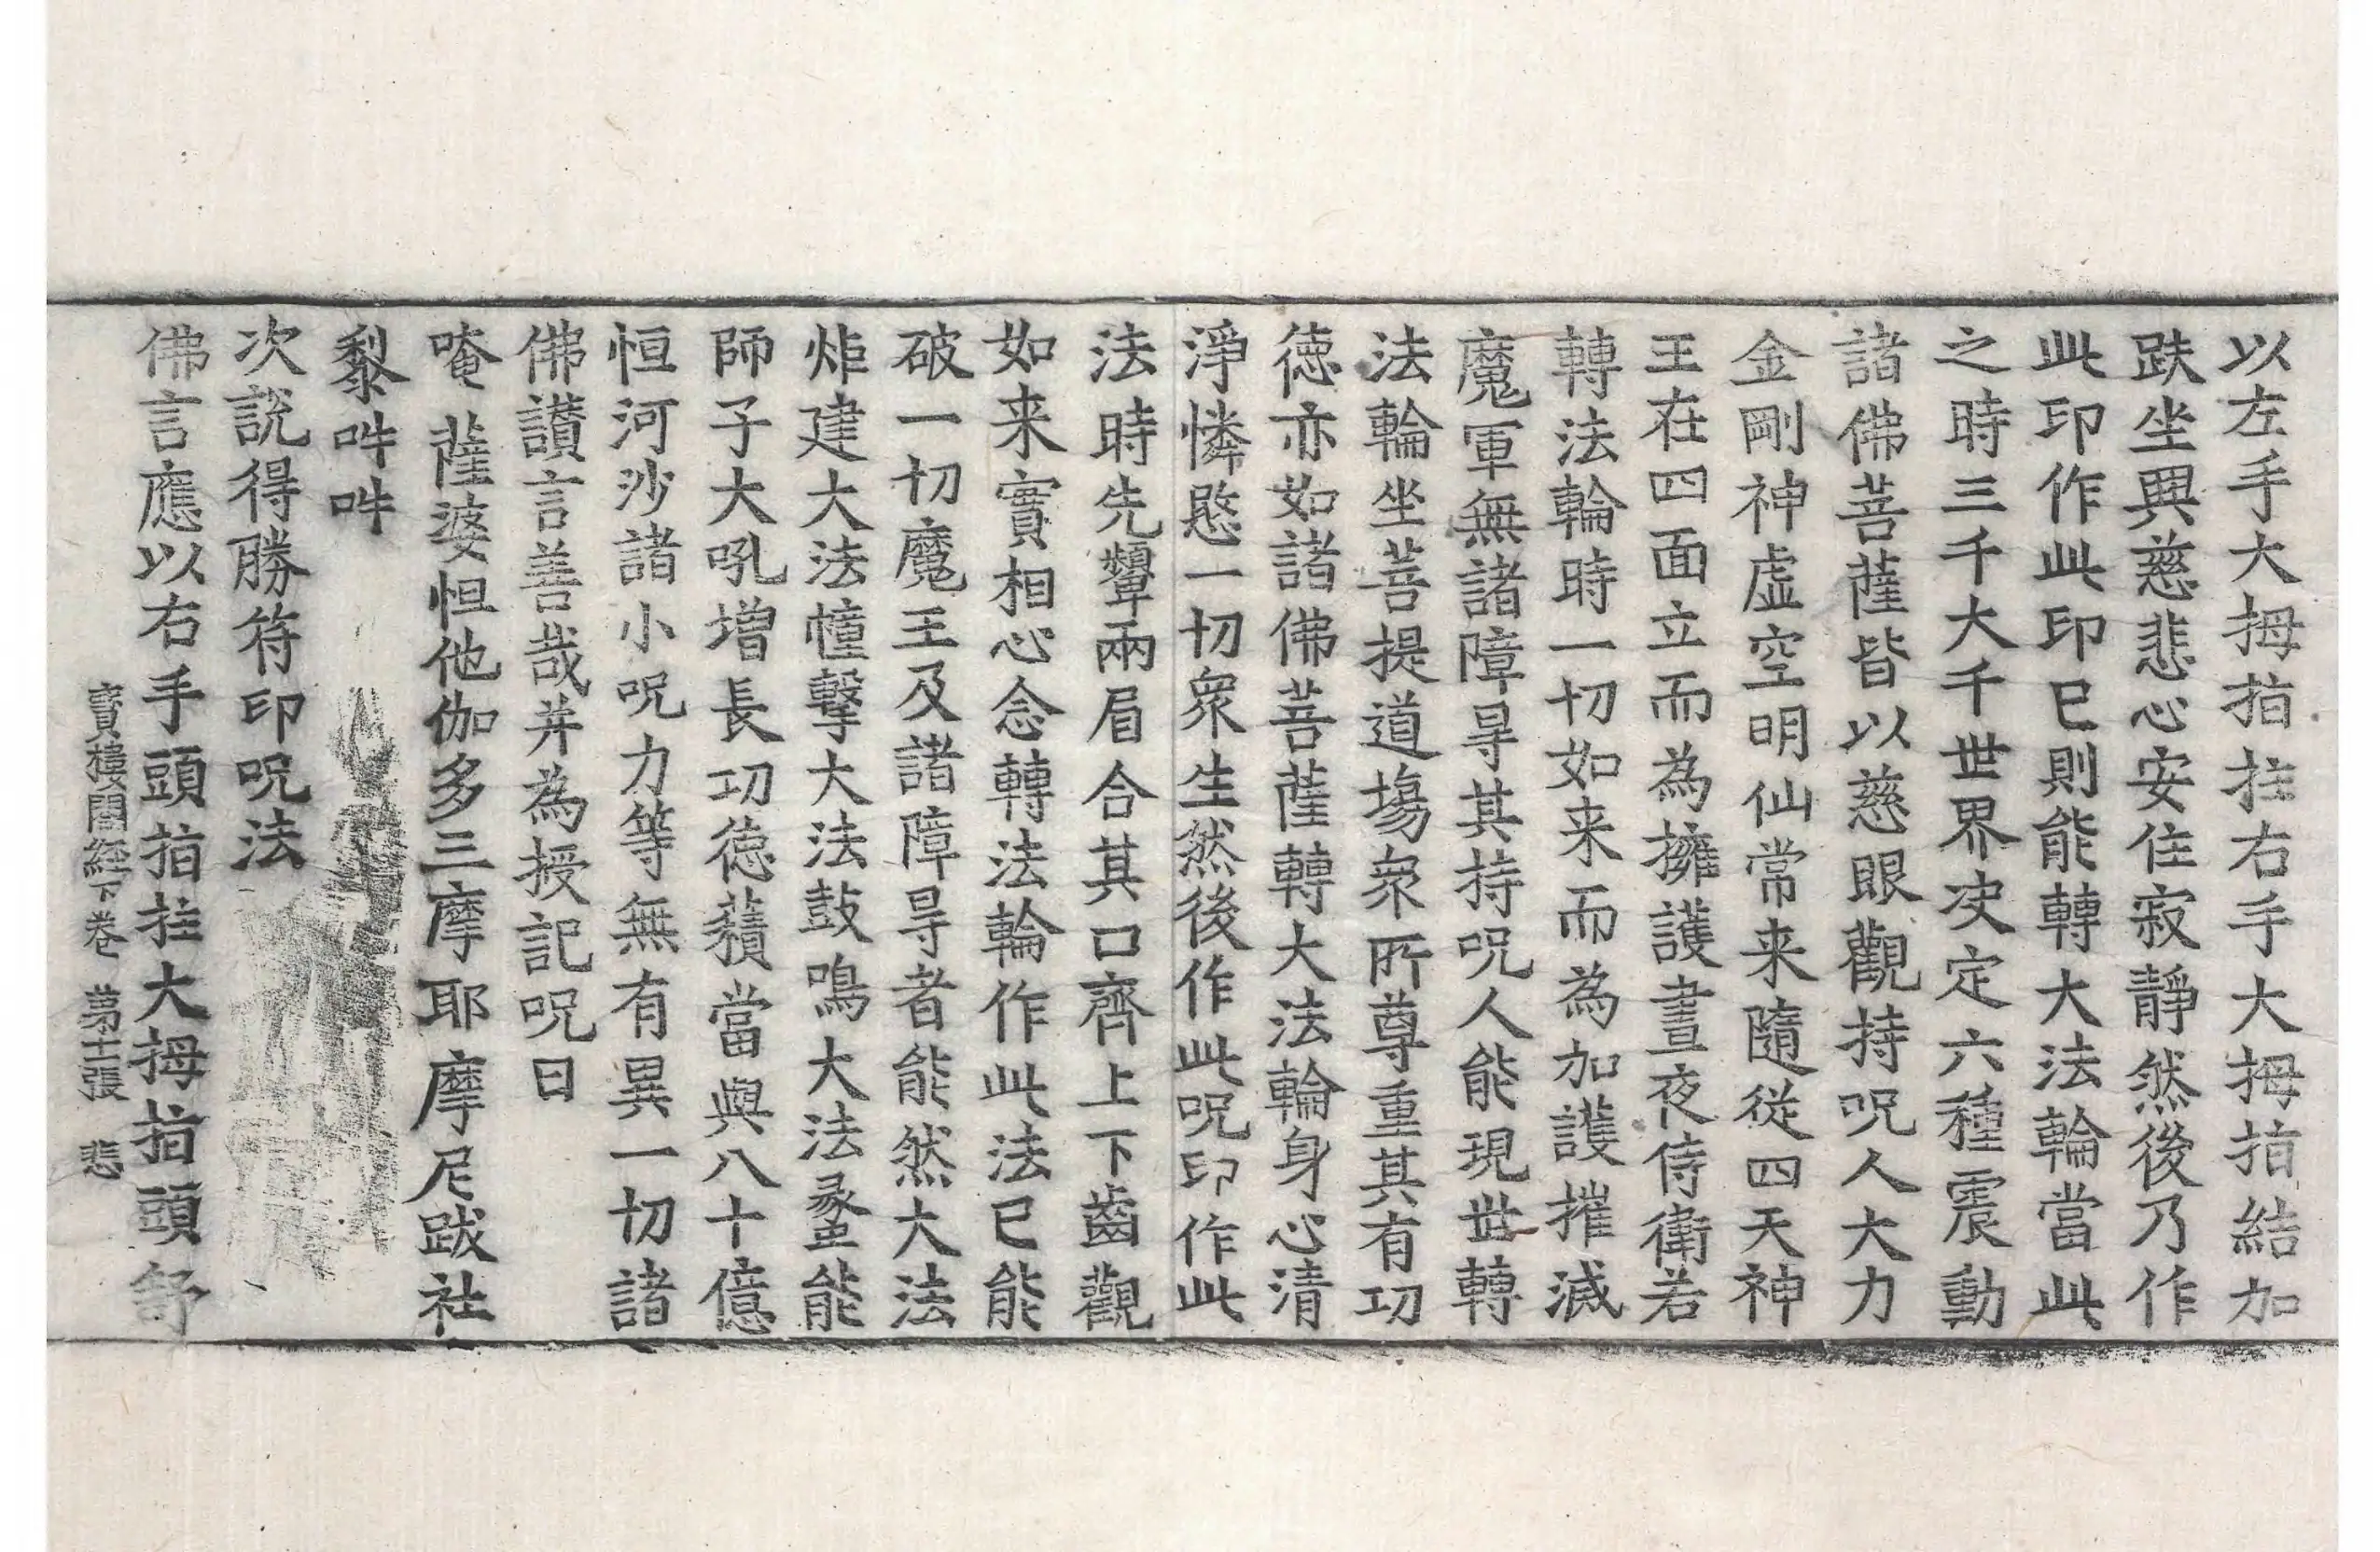 以左手大拇指拄右手大拇指結加
趺坐興慈悲心安住寂靜然後乃作
此印作此印已則能轉大法輪當此
之時三千大千世界决定六種震動
諸佛菩薩皆以慈眼觀持呪人大力
金剛神虛空明仙常来隨從四天神
王在四面立而為擁護晝夜侍衛若
轉法輪時一切如来而為加護摧滅
魔軍無諸障㝵其持呪人能現世轉
法輪坐菩提道場衆所尊重其有功
德亦如諸佛菩薩轉大法輪身心清
淨憐愍一切衆生然後作此呪印作此
法時先顰兩眉合其口齊上下齒觀
如来實相心念轉法輪作此法已能
破一切魔王及諸障㝵者能然大法
炬建大法幢擊大法鼓鳴大法蠡能
師子大吼增長功德蘱當與八十億
恒河沙諸小呪力等無有異一切諸
佛讃言善哉并為授記呪曰
唵 薩婆怛他伽多三摩耶摩尼跋社
黎吽吽
次說得勝符印呪法
佛言應以右手頭指拄大拇指頭舒
寶樓閣經下卷 苐十二張 悲